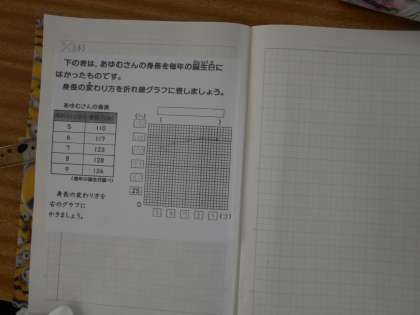 下の表は、あゆむさんの身長を毎年の誕生日に
はかったものです。
身長の変わり方を折れ線グラフに表しましょう。
あゆむさんの身長
5 110
6 117
7 123
8 128
9
(毎年の誕生日調べ)
身長の変わり方を
右のグラフに
かきましょう。
0